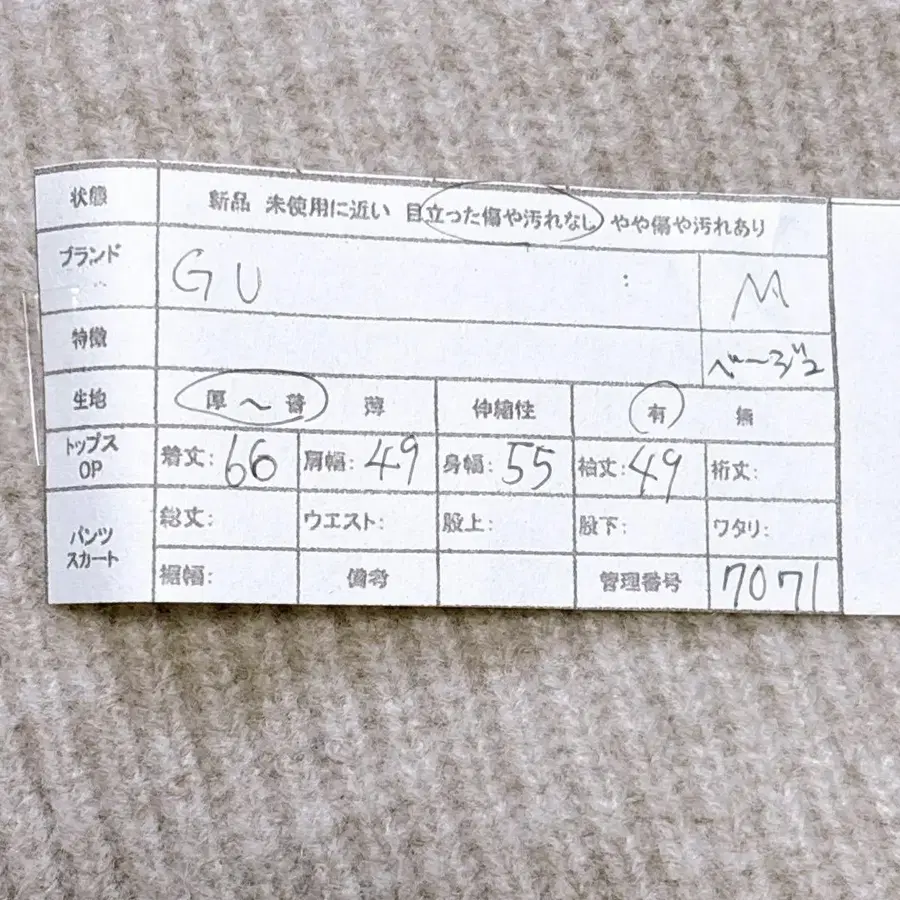 状態 新品 未使用に近い 目立った傷や汚れなし やや傷や汚れあり
ブランド GU : M
特徴 ベージュ
生地 厚 〜 普 薄 伸縮性 有 無
トップス OP 着丈: 66 肩幅: 49 身幅: 55 袖丈: 49 裄丈:
パンツ スカート 総丈: ウエスト: 股上: 股下: ワタリ:
裾幅: 備考 管理番号 7071